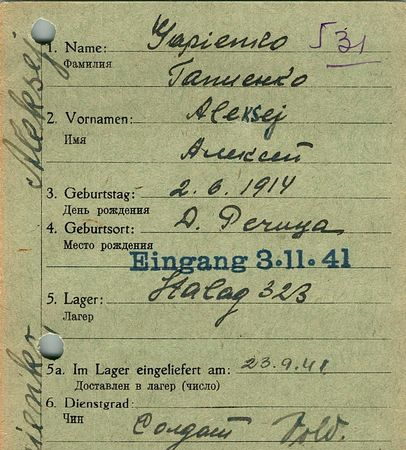 1. Name: Gapienko
531
Фамилия
Гапиенко
2. Vornamen: Aleksej
Имя
Алексей
3. Geburtstag: 2.6.1914
День рождения
4. Geburtsort: Д.
Место рождения
Eingang 3.11.41
5. Lager: Stalag 323
Лагер
5a. Im Lager eingeliefert am: 23.9.41
Доставлен в лагер (число)
6. Dienstgrad:
Чин
Солдат Sold.
Aleksej